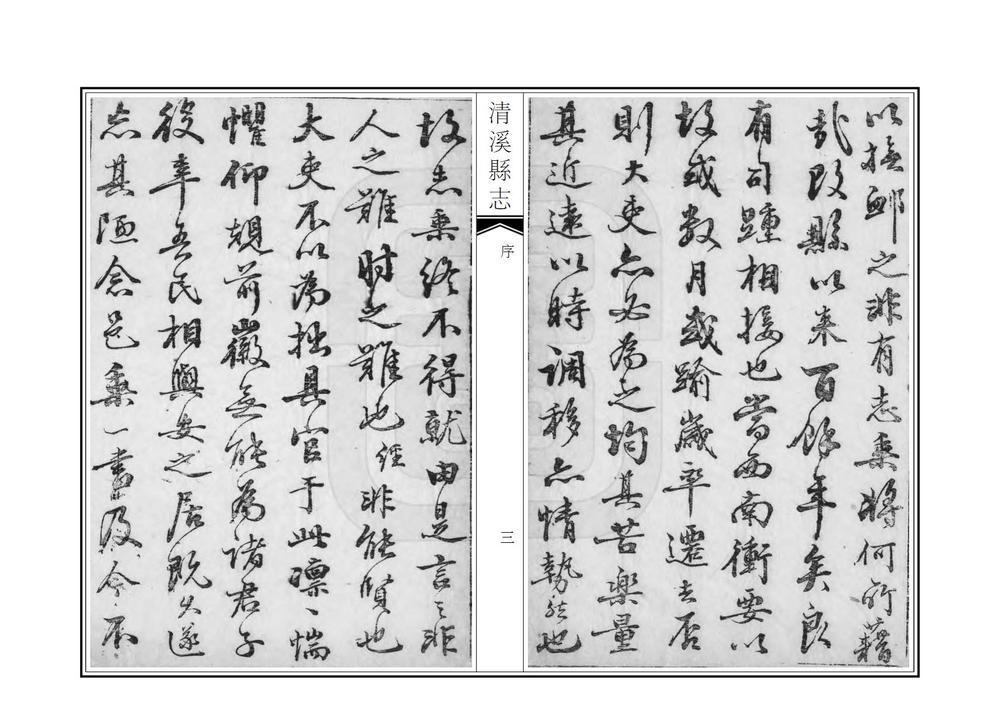 以撫卹之非有志乘將何所藉
哉改縣以来百餘年矣良
有司踵相接也當西南衝要以
故或數月或踰歲率遷去否
則大吏亦必為之均其苦樂量
其近遠以時調移亦情勢然也
清溪縣志
序
三
故志乘終不得就由是言之非
人之難時之難也經非能賢也
大吏不以為拙具官于此凛〻惴
懼仰規前徽無能為諸君子
役幸吾民相與安之居既久遂
忘其陋念邑乘一書及今不